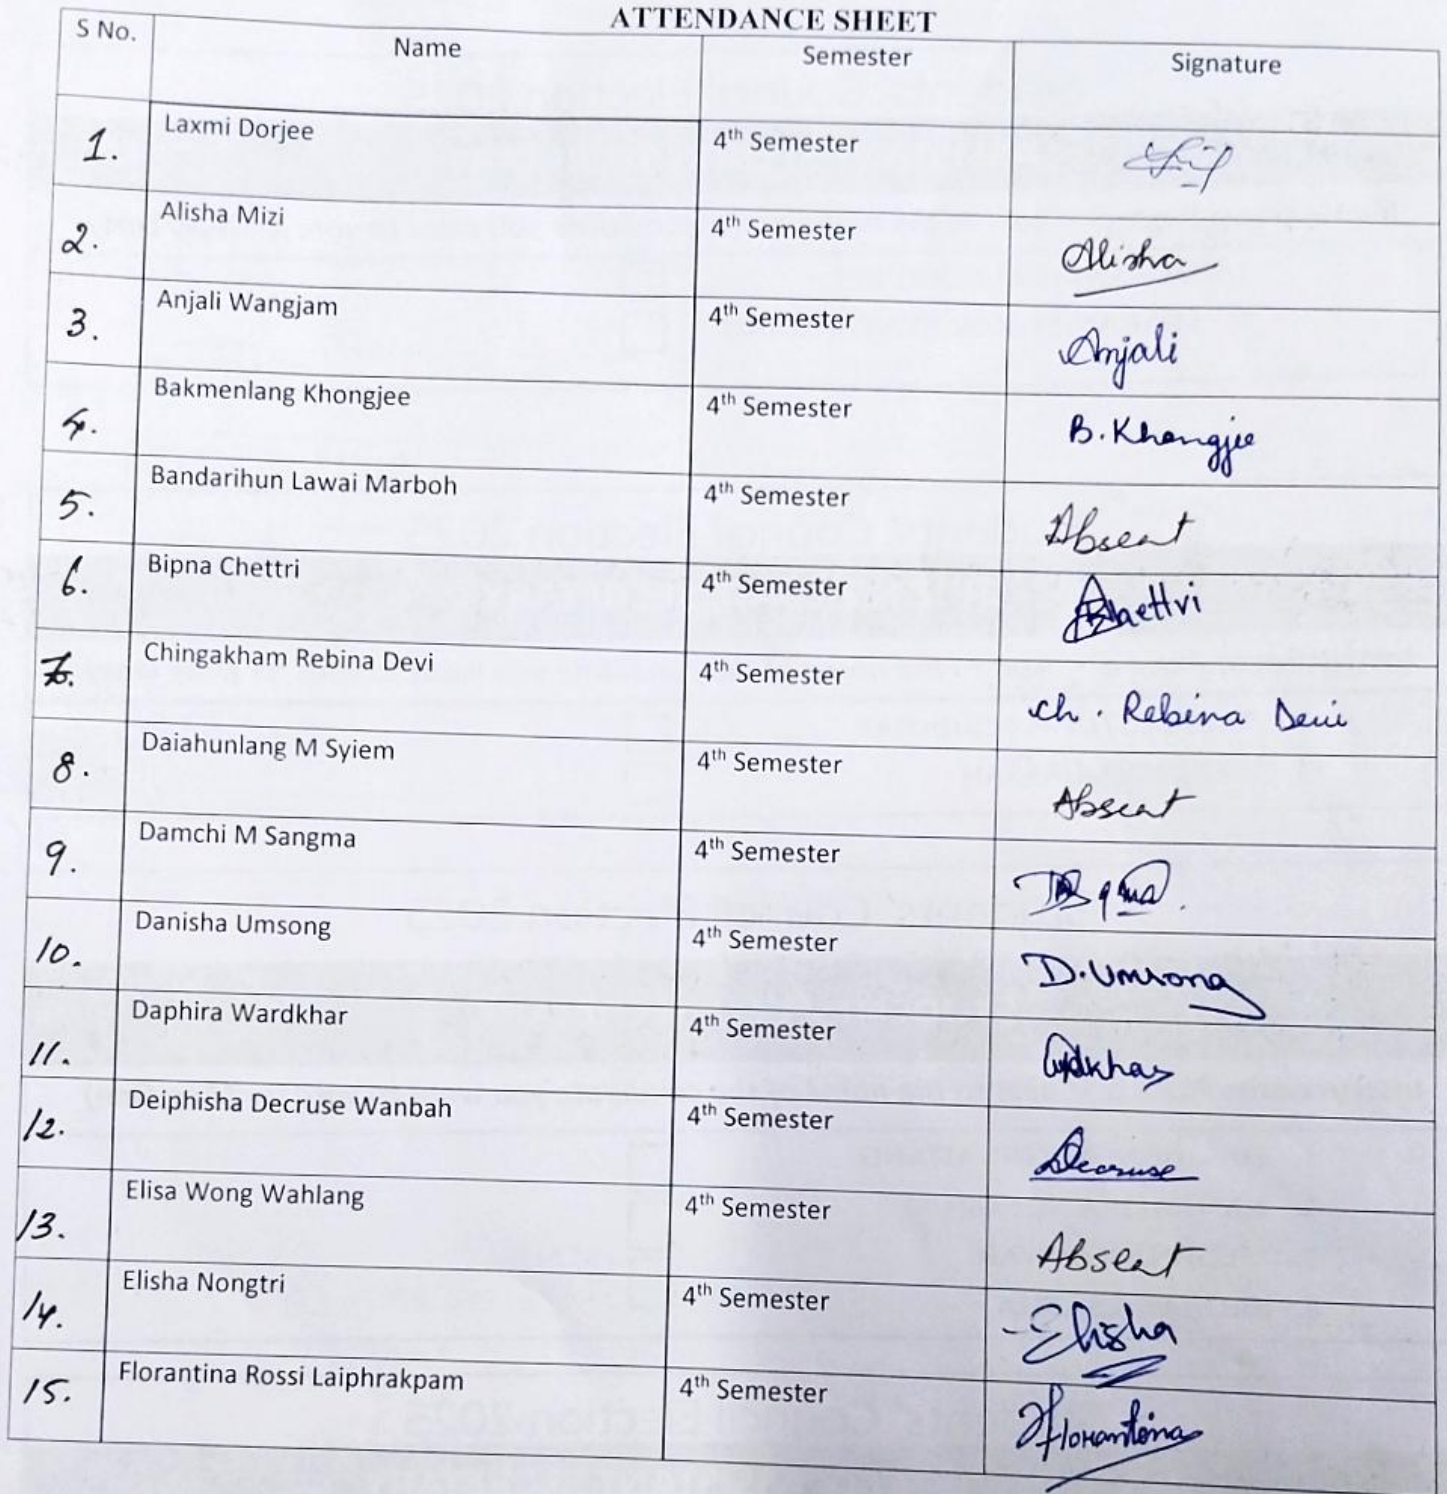 ATTENDANCE SHEET
S No. Name Semester Signature
1. Laxmi Dorjee 4th Semester
2. Alisha Mizi 4th Semester Alisha
3. Anjali Wangjam 4th Semester Anjali
4. Bakmenlang Khongjee 4th Semester B. Khongjee
5. Bandarihun Lawai Marboh 4th Semester Absent
6. Bipna Chettri 4th Semester Bchettri
7. Chingakham Rebina Devi 4th Semester ch. Rebina Devi
8. Daiahunlang M Syiem 4th Semester Absent
9. Damchi M Sangma 4th Semester
10. Danisha Umsong 4th Semester D. Umsong
11. Daphira Wardkhar 4th Semester
12. Deiphisha Decruse Wanbah 4th Semester Decruse
13. Elisa Wong Wahlang 4th Semester Absent
14. Elisha Nongtri 4th Semester Elisha
15. Florantina Rossi Laiphrakpam 4th Semester Florantina